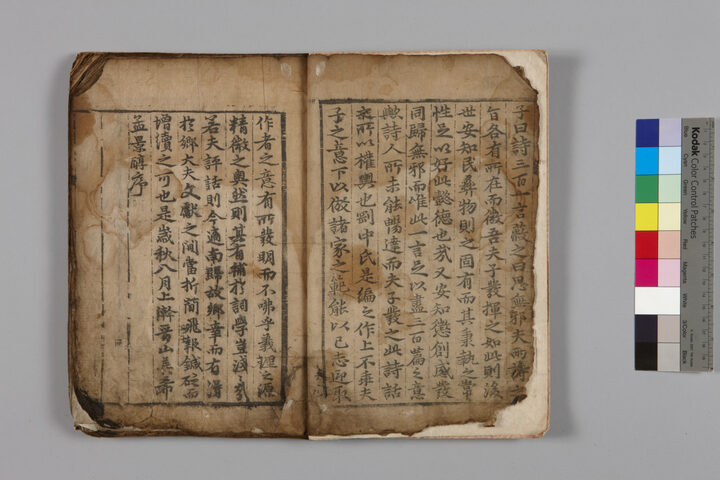 子曰詩三百一言蔽之曰思無邪夫
旨各有所在而微吾夫子發揮之如此則後
世安知民彝物則之固有而其秉執之常
性足以好此懿德也哉又安知懲創感發
同歸無邪而惟此一言足以盡三百篇之意
歟詩人所未能暢達而夫子發之此詩話
之所以權輿也剛中氏是編之作上不乖夫
子之意下以倣諸家之範能以己志迎取
作者之意有所發明而不咈乎義理之源
精微之奧然則其有補於詞學豈淺
若夫評話則今適南歸故鄉幸而有得
於鄉大夫文獻之間當折簡飛報鍼砭而
增瀆之可也是歲秋八月上澣晉山姜希
孟景醇序
Kodak Color Control Patches
Blue Cyan Green Yellow Red Magenta White 3/Color Black